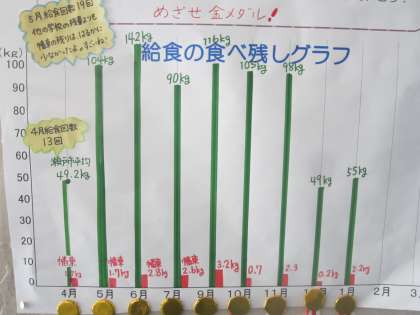 めざせ 金メダル!
給食の食べ残しグラフ
5月給食回数19回
他の学校の残量よりも
幡東の残りは、はるかに
少なかったよ。すごいね!
4月給食回数
13回
(kg)
100
90
80
70
60
50
40
30
20
10
0
49.2kg
104kg
142kg
90kg
116kg
105kg
98kg
49kg
55kg
幡東
幡東
1.7kg
幡東
2.8kg
幡東
2.6kg
3.2kg
0.7
2.3
0.2kg
2.2kg
4月
5月
6月
7月
9月
10月
11月
1月
2月
3月